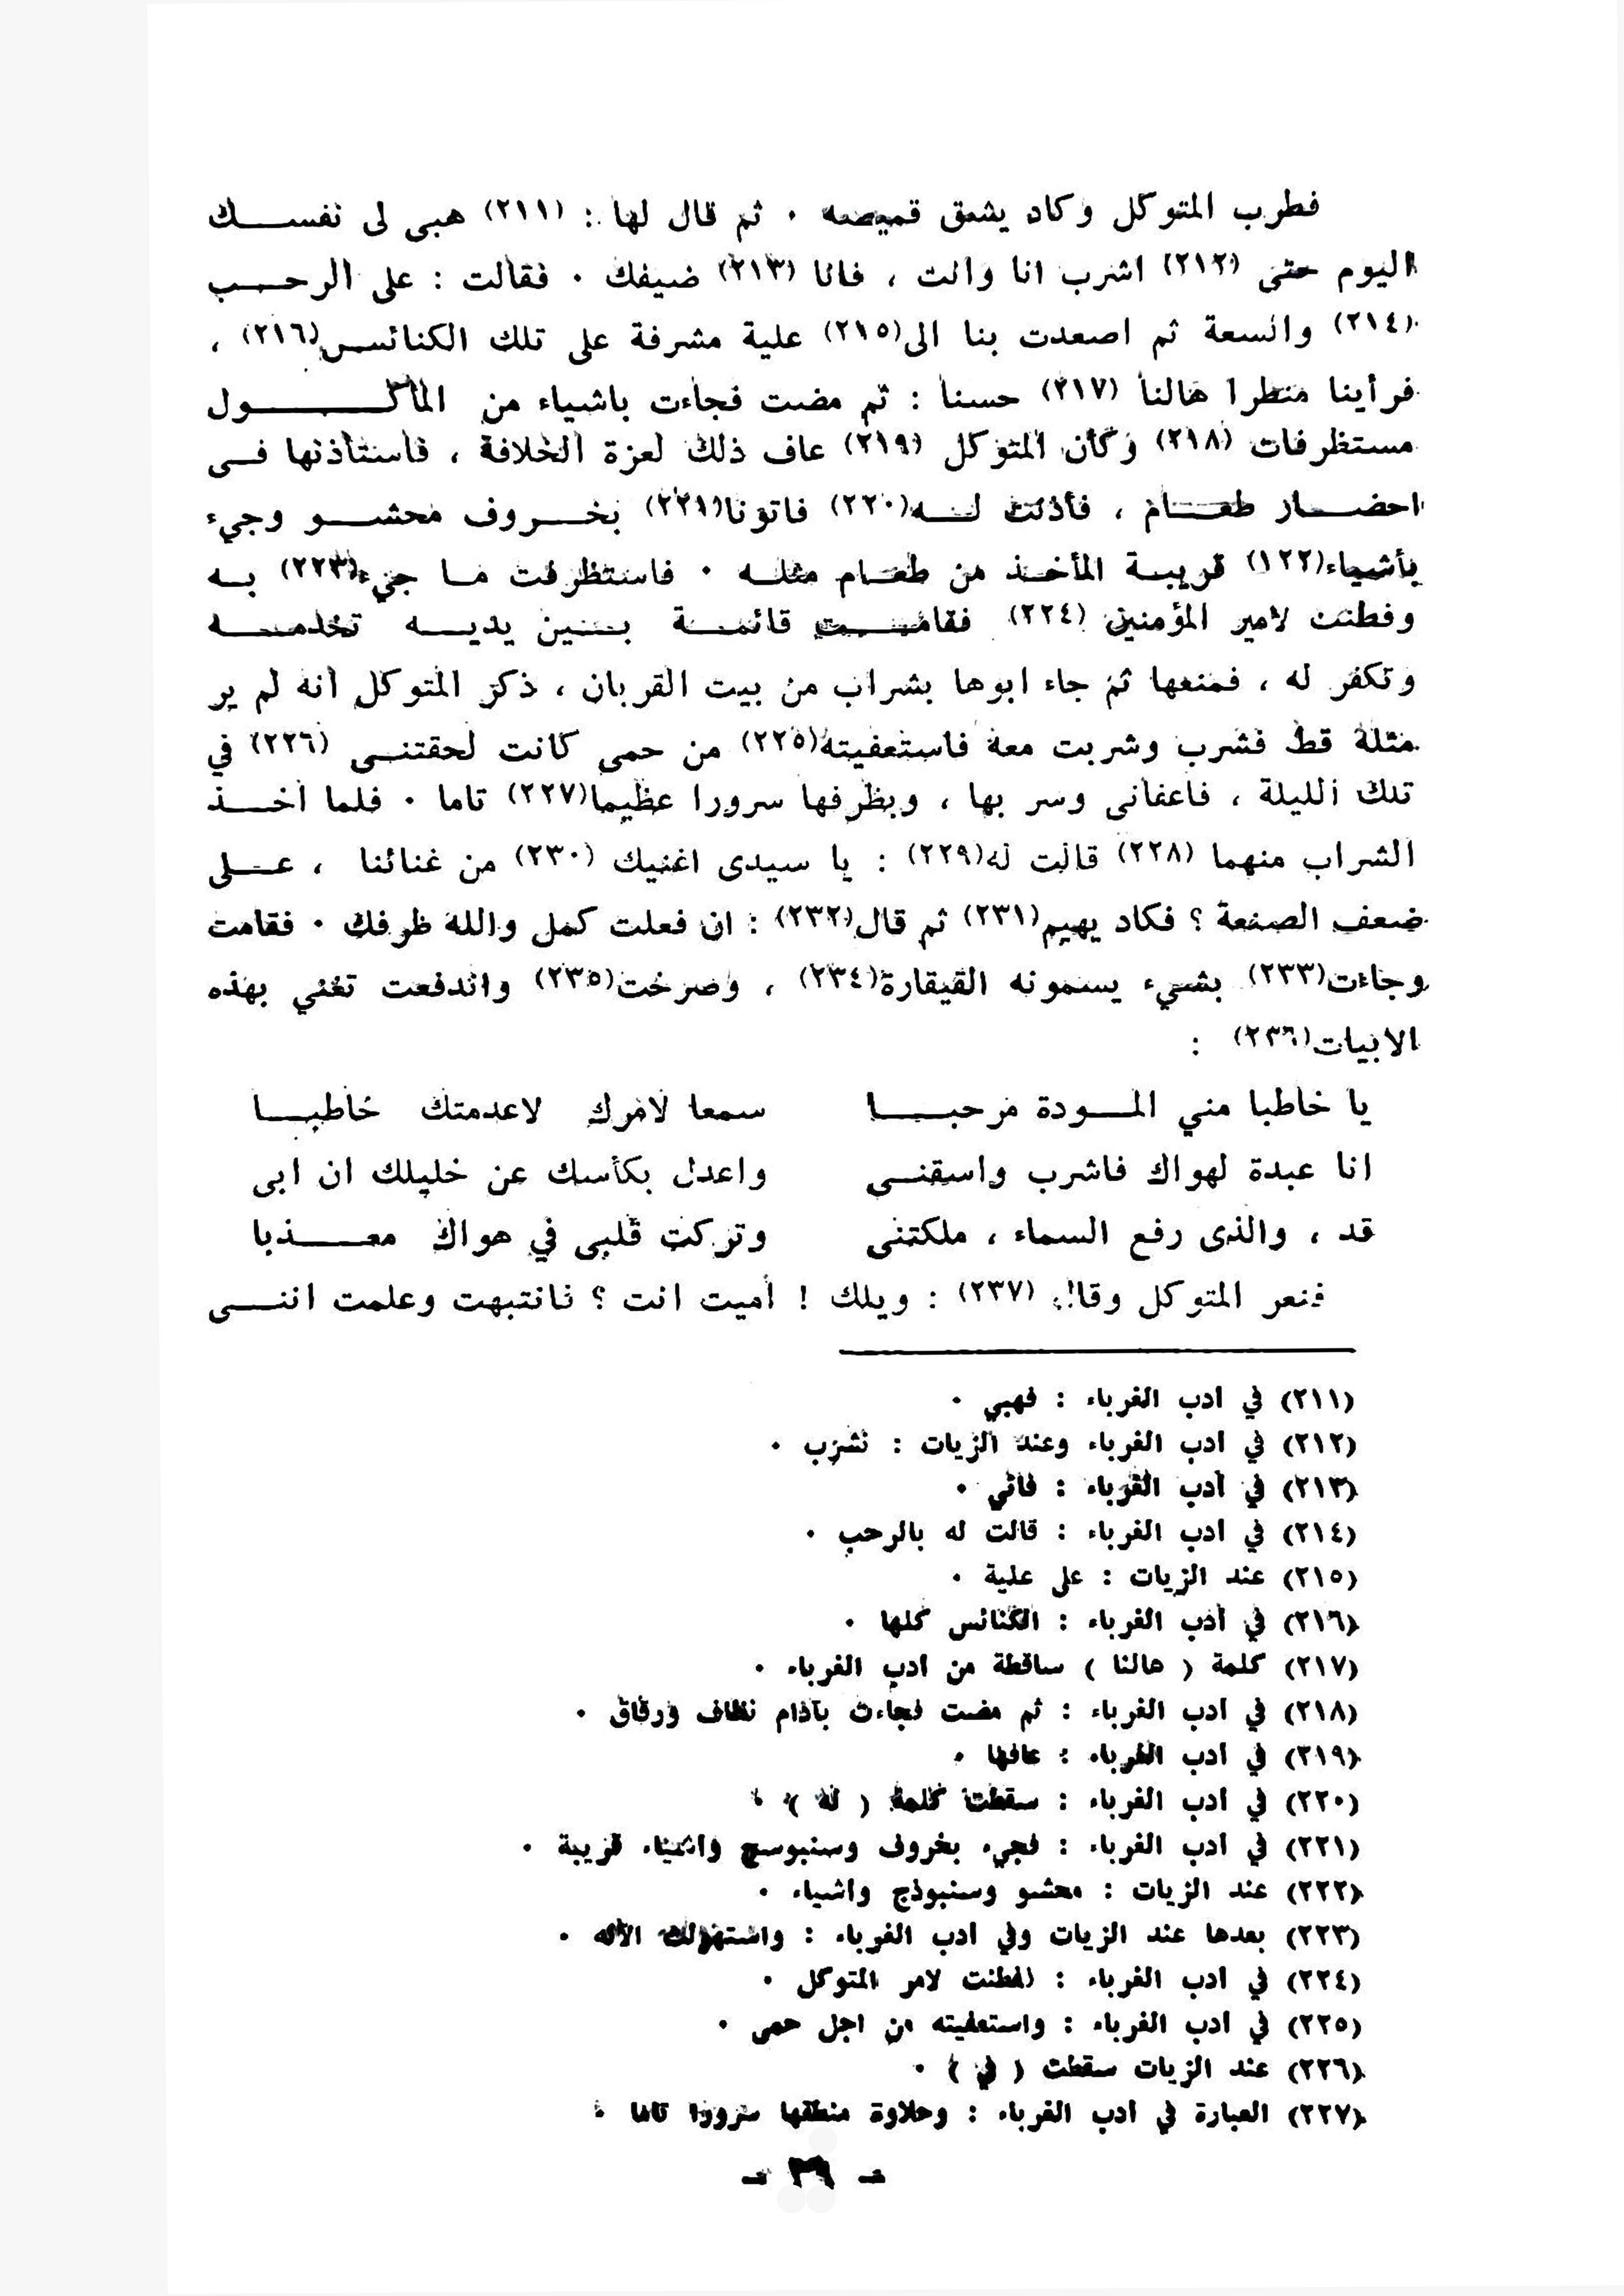 فطرب المتوكل وكاد يشق قميصه ٠ ثم قال لها : (٢١١) هبى لى نفســـك
اليوم حتى (٢١٢) اشرب انا وانت ، فانا (٢١٣) ضيفك ٠ فقالت : على الرحــب
(٢١٤) والسعة ثم اصعدت بنا الى(٢١٥) علية مشرفة على تلك الكنائس(٢١٦) ،
فرأينا منظرا هالنا (٢١٧) حسنا : ثم مضت فجاءت باشياء من المأكـــــول
مستظرفات (٢١٨) وكأن المتوكل (٢١٩) عاف ذلك لعزة الخلافة ، فاستأذنها فــى
احضـــار طعـــام ، فأذنت لـــه(٢٢٠) فاتونا(٢٢١) بخـــروف محشـــو وجيء
بأشياء(١٢٢) قريبــة المأخــذ من طعــام مثلــه ٠ فاستظرفت مــا جيء(٢٢٣) بــه
وفطنت لامير المؤمنين (٢٢٤) فقامـــت قائمــة بـــين يديــه تخدمـــه
وتكفر له ، فمنعها ثم جاء ابوها بشراب من بيت القربان ، ذكر المتوكل أنه لم ير
مثله قط فشرب وشربت معه فاستعفيته(٢٢٥) من حمى كانت لحقتنــى (٢٢٦) في
تلك الليلة ، فاعفانى وسر بها ، وبظرفها سرورا عظيما(٢٢٧) تاما ٠ فلما أخــذ
الشراب منهما (٢٢٨) قالت له(٢٢٩) : يا سيدى اغنيك (٢٣٠) من غنائنا ، عــلى
ضعف الصنعة ؟ فكاد يهيم(٢٣١) ثم قال(٢٣٢) : ان فعلت كمل والله ظرفك ٠ فقامت
وجاءت(٢٣٣) بشيء يسمونه القيقارة(٢٣٤) ، وصرخت(٢٣٥) واندفعت تغني بهذه
الابيات(٢٣٦) :
يا خاطبا مني المـــودة مرحبـــا سمعا لامرك لاعدمتك خاطبـــا
انا عبدة لهواك فاشرب واسقنــى واعدل بكأسك عن خليلك ان ابى
قد ، والذى رفع السماء ، ملكتنى وتركت قلبى في هواك معـــذبا
فنعر المتوكل وقال (٢٣٧) : ويلك ! أميت انت ؟ فانتبهت وعلمت اننـــى
(٢١١) في ادب الغرباء : فهبي ٠
(٢١٢) في ادب الغرباء وعند الزيات : نشرب ٠
(٢١٣) في أدب الغرباء : فاني ٠
(٢١٤) في ادب الغرباء : قالت له بالرحب ٠
(٢١٥) عند الزيات : على علية ٠
(٢١٦) في أدب الغرباء : الكنائس كلها ٠
(٢١٧) كلمة ( هالنا ) ساقطة من ادب الغرباء ٠
(٢١٨) في ادب الغرباء : ثم مضت فجاءت بآدام نظاف ورقاق ٠
(٢١٩) في ادب الغرباء : عافها ٠
(٢٢٠) في ادب الغرباء : سقطت كلمة ( له ) ٠
(٢٢١) في ادب الغرباء : فجيء بخروف وسنبوسج واشياء قريبة ٠
(٢٢٢) عند الزيات : محشو وسنبوذج واشياء ٠
(٢٢٣) بعدها عند الزيات وفي ادب الغرباء : واستهولت الآلة ٠
(٢٢٤) في ادب الغرباء : ففطنت لامر المتوكل ٠
(٢٢٥) في ادب الغرباء : واستعفيته من اجل حمى ٠
(٢٢٦) عند الزيات سقطت ( في ) ٠
(٢٢٧) العبارة في ادب الغرباء : وحلاوة منطقها سرورا تاما ٠
- ٣٩ -